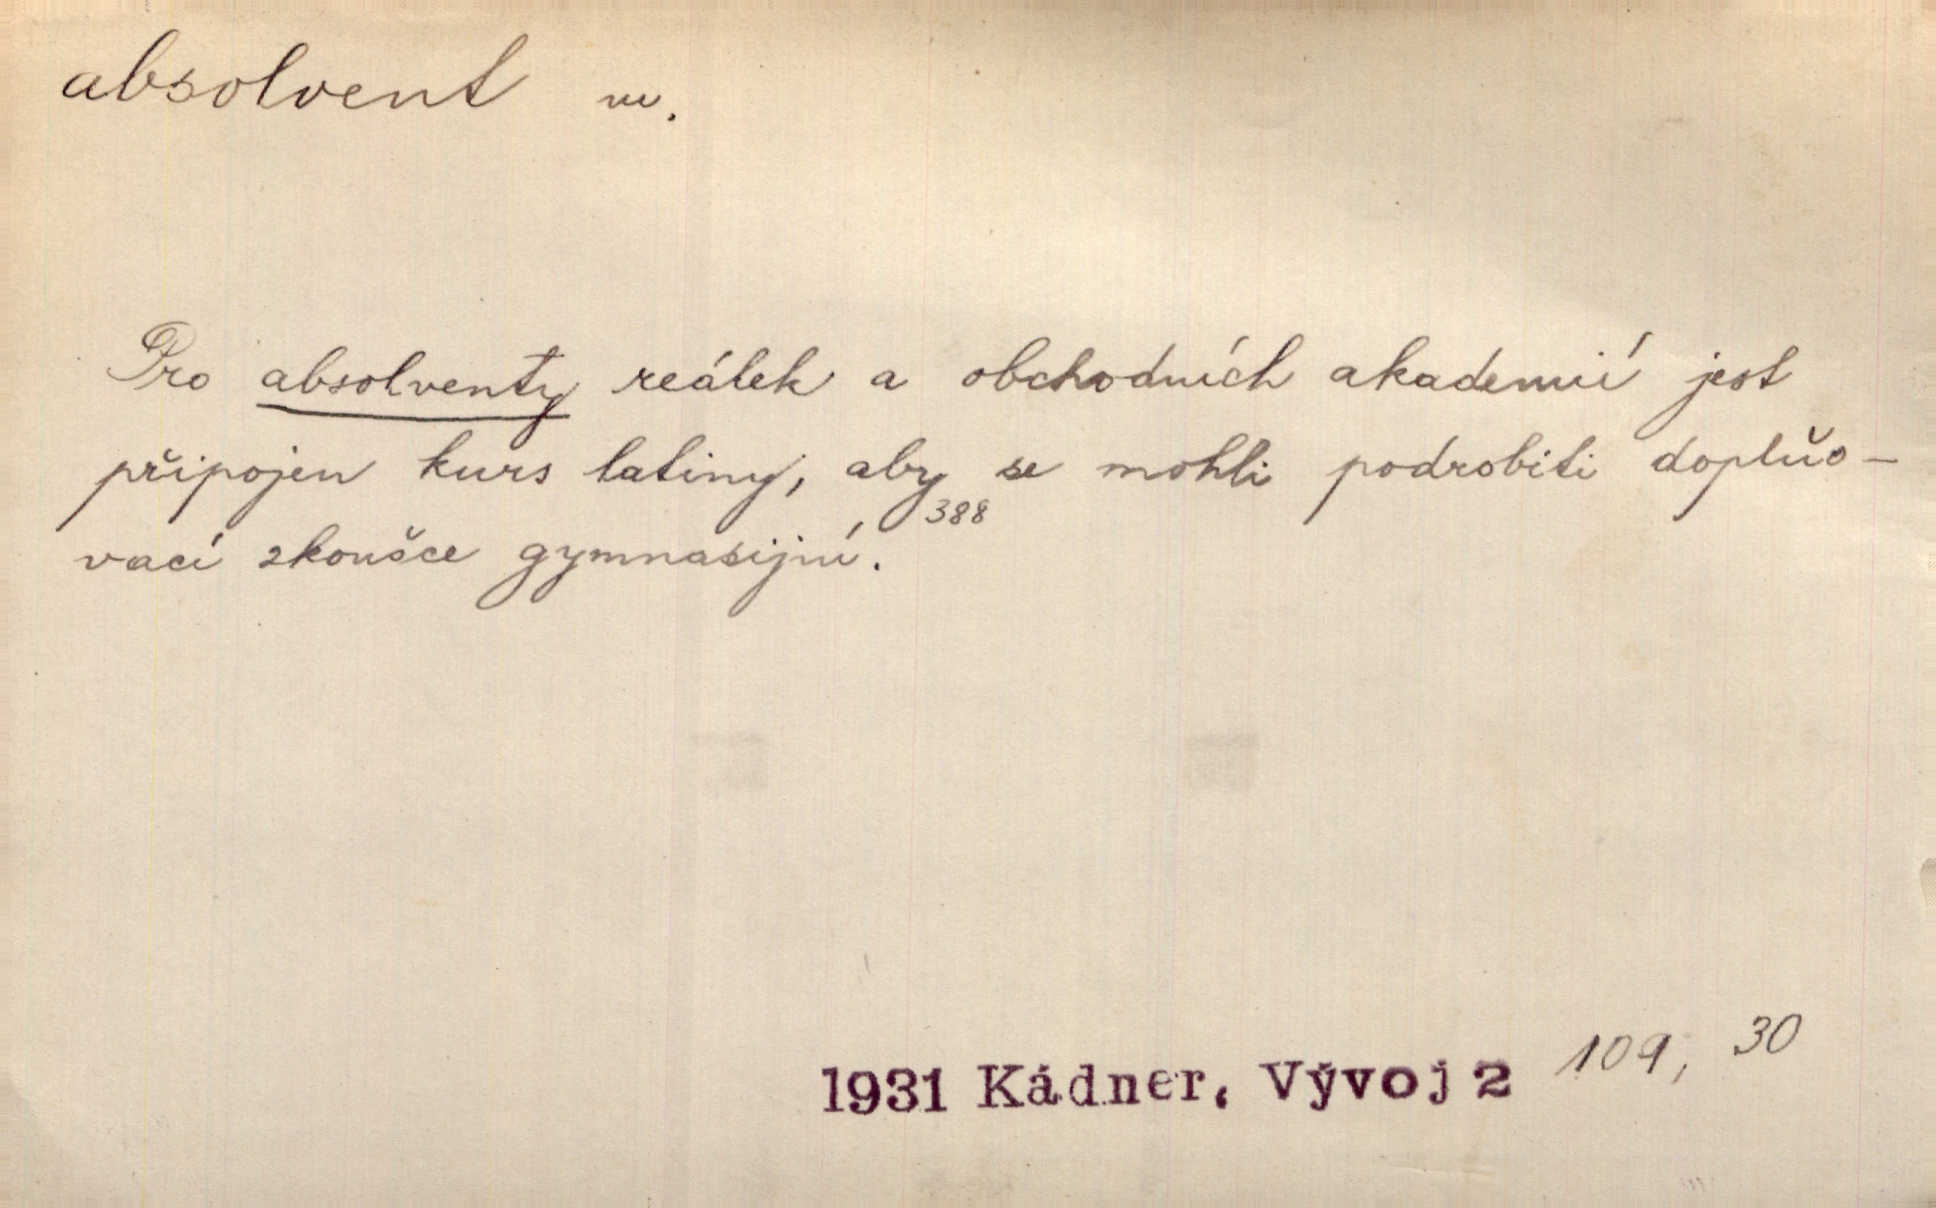 absolvent m.
Pro absolventy reálek a obchodních akademií jest
připojen kurs latiny, aby se mohli podrobiti doplňo-
vací zkoušce gymnasijní. 388
1931 Kádner, Vývoj 2 109, 30